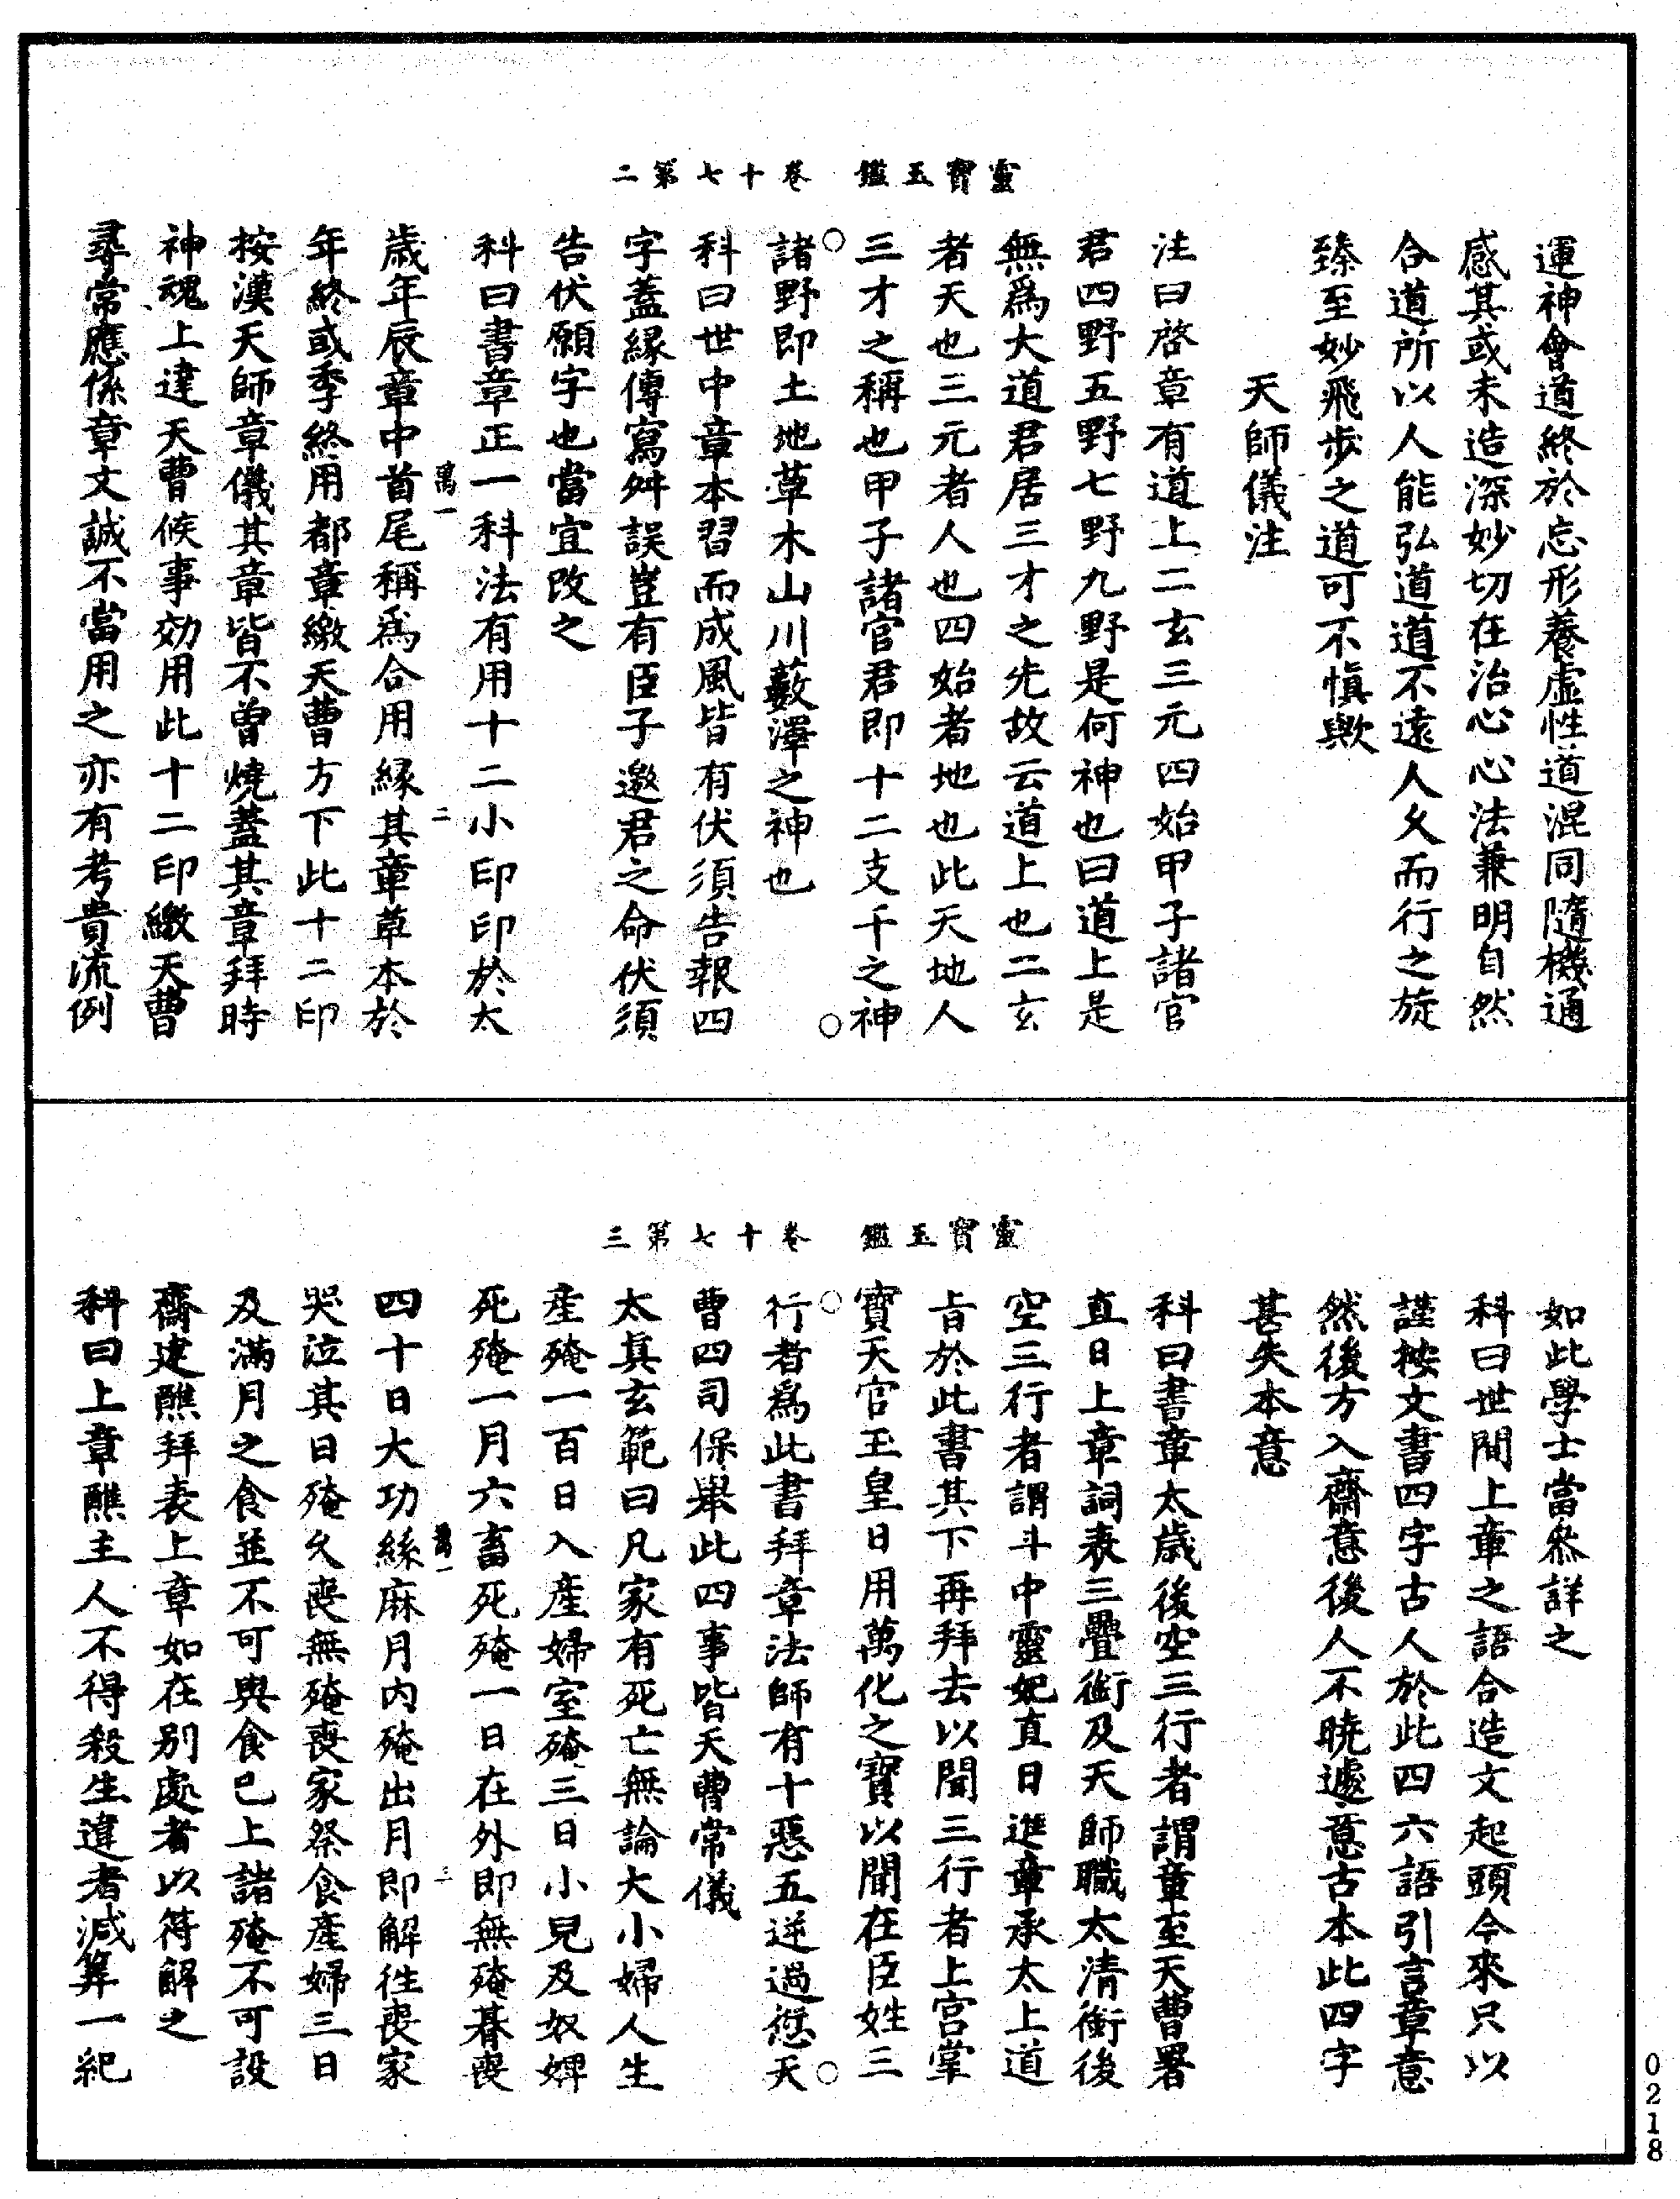 靈寶玉鑑　卷十七第二
運神會道終於忘形養虛性道混同隨機通
感其或未造深妙切在治心心法兼明自然
合道所以人能弘道道不遠人久而行之旋
臻至妙飛步之道可不慎歟
天師儀注
注曰啓章有道上二玄三元四始甲子諸官
君四野五野七野九野是何神也曰道上是
無爲大道君居三才之先故云道上也二玄
者天也三元者人也四始者地也此天地人
三才之稱也甲子諸官君即十二支千之神
諸野即土地草木山川藪澤之神也
科曰世中章本習而成風皆有伏須告報四
字蓋緣傳寫舛誤豈有臣子邀君之命伏須
告伏願字也當宜改之
科曰書章正一科法有用十二小印印於太
萬一
二
歲年辰章中首尾稱爲合用緣其章草本於
年終或季終用都章繳天曹方下此十二印
按漢天師章儀其章皆不曾燒蓋其章拜時
神魂上達天曹候事効用此十二印繳天曹
尋常應係章文誠不當用之亦有考貴流例
靈寶玉鑑　卷十七第三
如此學士當叅詳之
科曰世間上章之語合造文起頭今來只以
謹按文書四字古人於此四六語引言章意
然後方入齋意後人不曉遽意古本此四字
甚失本意
科曰書章太歲後空三行者謂章至天曹署
直日上章詞表三疊銜及天師職太清銜後
空三行者謂斗中靈妃直日進章承太上道
旨於此書其下再拜去以聞三行者上宮掌
寶天官玉皇日用萬化之寶以聞在臣姓三
行者爲此書拜章法師有十惡五逆過愆天
曹四司保舉此四事皆天曹常儀
太真玄範曰凡家有死亡無論大小婦人生
產殗一百日入產婦室殗三日小兒及奴婢
死殗一月六畜死殗一日在外即無殗朞喪
萬一
三
四十日大功緦麻月內殗出月即解徃喪家
哭泣其日殗久喪無殗喪家祭食產婦三日
及滿月之食並不可與食巳上諸殗不可設
齋建醮拜表上章如在別處者以符解之
科曰上章醮主人不得殺生違者減筭一紀
0218